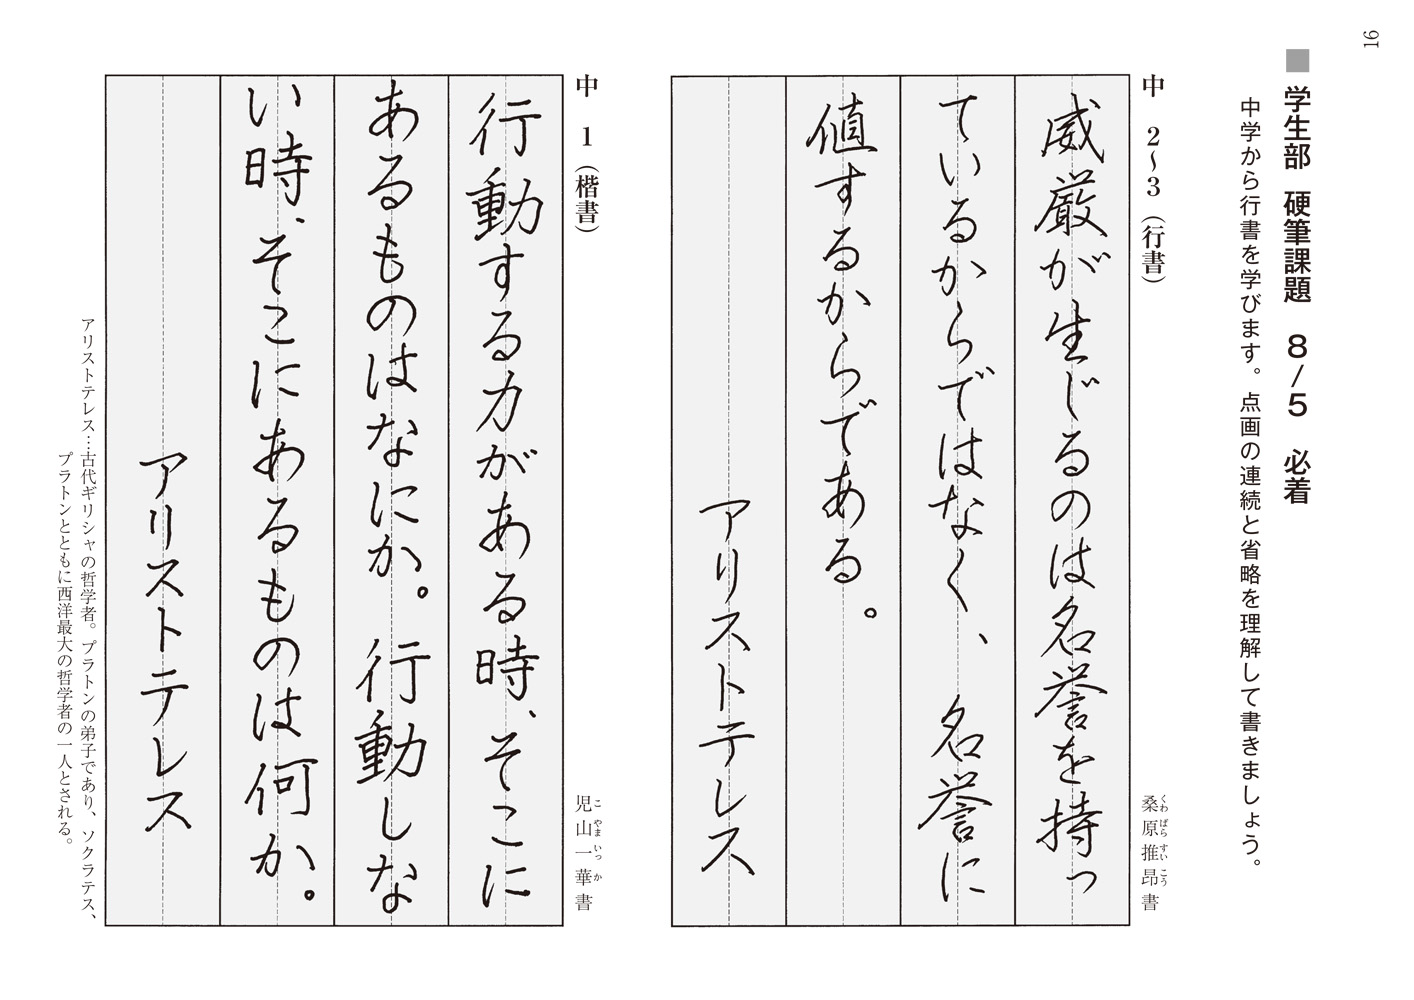 16
■学生部 硬筆課題 8/5 必着
中学から行書を学びます。点画の連続と省略を理解して書きましょう。
中 2〜3（行書）
桑原推昂書
くわばらすいこう
威厳が生じるのは名誉を持っ
ているからではなく、名誉に
値するからである。
アリストテレス
中 1（楷書）
児山一華書
こやまいっか
行動する力がある時、そこに
あるものはなにか。行動しな
い時、そこにあるものは何か。
アリストテレス
アリストテレス…古代ギリシャの哲学者。プラトンの弟子であり、ソクラテス、
プラトンとともに西洋最大の哲学者の一人とされる。